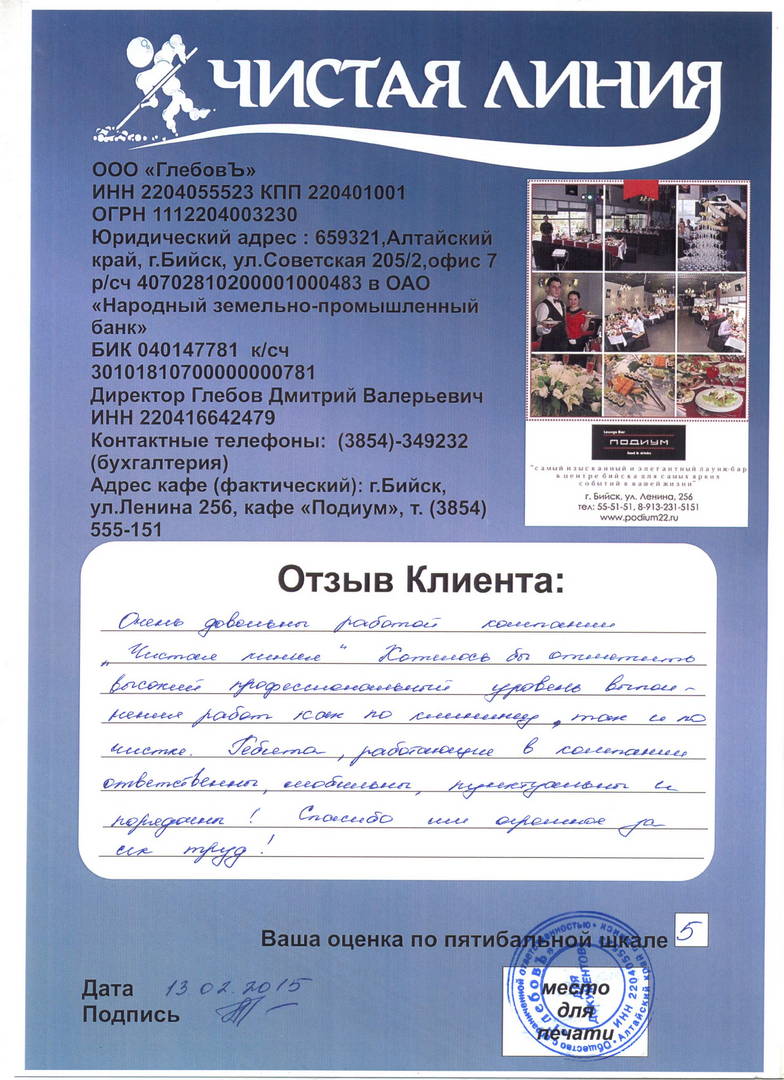 ЧИСТАЯ ЛИНИЯ
ООО «ГлебовЪ»
ИНН 2204055523 КПП 220401001
ОГРН 1112204003230
Юридический адрес : 659321,Алтайский
край, г.Бийск, ул.Советская 205/2,офис 7
р/сч 40702810200001000483 в ОАО
«Народный земельно-промышленный
банк»
БИК 040147781 к/сч
30101810700000000781
Директор Глебов Дмитрий Валерьевич
ИНН 220416642479
Контактные телефоны: (3854)-349232
(бухгалтерия)
Адрес кафе (фактический): г.Бийск,
ул.Ленина 256, кафе «Подиум», т. (3854)
555-151
Lounge Bar
ПОДИУМ
food & drinks
"самый изысканный и элегантный лаунж-бар
в центре бийска для самых ярких
событий в вашей жизни"
г. Бийск, ул. Ленина, 256
тел: 55-51-51, 8-913-231-5151
www.podium22.ru
Отзыв Клиента:
Очень довольны работой компании
„Чистая линия" Хотелось бы отметить
высокий профессиональный уровень выпол-
нения работ как по клинингу, так и по
чистке. Ребята, работающие в компании
ответственны, мобильны, пунктуальны и
порядочны! Спасибо им огромное за
их труд!
Ваша оценка по пятибальной шкале 5
Дата 13.02.2015
Подпись
место
для
печати
Общество с ограниченной ответственностью
Алтайский край
ИНН 2204055523
«ГлебовЪ»
ДЛЯ ДОКУМЕНТОВ